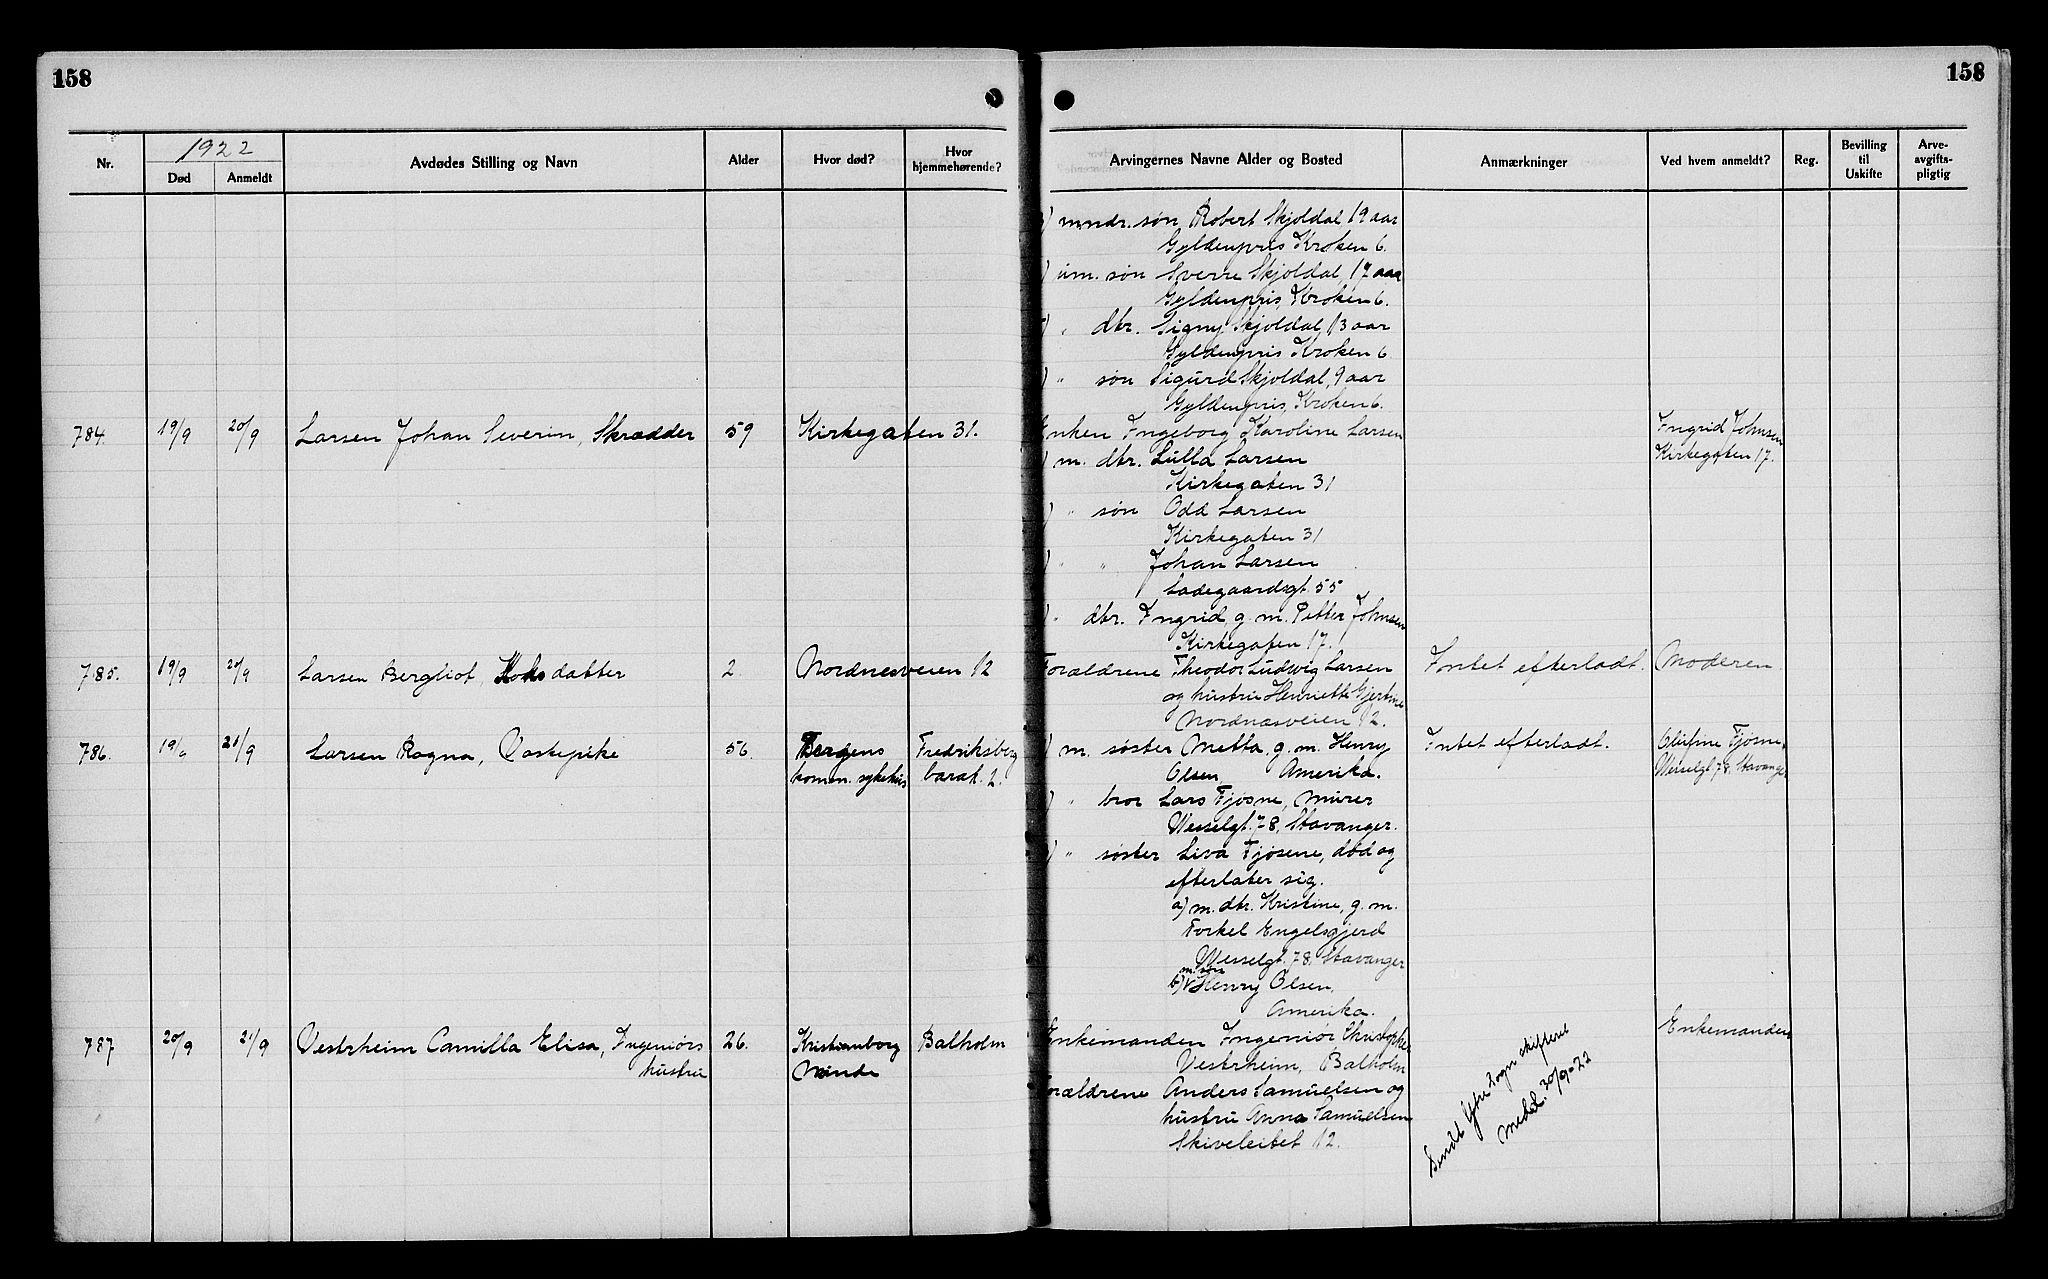 158
158
1922
Nr.
Død
Anmeldt
Avdødes Stilling og Navn
Alder
Hvor død?
Hvor hjemmehørende?
Arvingernes Navne Alder og Bosted
Anmærkninger
Ved hvem anmeldt?
Reg.
Bevilling til Uskifte
Arve-avgifts-pligtig
mndr. søn Robert Skjoldal 19 aar
Gyldenpris Kroken 6.
um. søn Sverre Skjoldal, 17 aar
Gyldenpris, Kroken 6.
" dtr. Signy Skjoldal, 13 aar
Gyldenpris Kroken 6
" søn Sigurd Skjoldal, 9 aar
Gyldenpris, Kroken 6.
784. 19/9 20/9 Larsen Johan Severin, Skrædder 59 Kirkegaten 31.
Enken Ingeborg Karoline Larsen
m. dtr. Lulla Larsen
Kirkegaten 31
" søn Odd Larsen
Kirkegaten 31
" " Johan Larsen
Ladegaardsgt. 55
" dtr. Ingrid, g. m. Petter Johnsen
Kirkegaten 17.
Ingrid Johnsen
Kirkegaten 17.
785. 19/9 20/9 Larsen Bergliot, datter 2 Nordnesveien 12
Forældrene Theodor Ludvig Larsen
og hustru Henriette Gjertine
Nordnæsveien 12.
Intet efterladt. Moderen.
786. 19/9 21/9 Larsen Ragna, Vaskepike 56. Bergens
komm. sykehus
Fredriksberg
barak. 2.
m. søster Metta, g. m. Henry
Olsen, Amerika.
" bror Lars Fjøsne, murer
Wesselgt. 78, Stavanger.
" søster Liva Fjøsene, død og
efterlater sig.
a) m. dtr. Kristine, g. m.
Torkel Engelsgjerd
Wesselgt. 78. Stavanger
b) m. søn Henry Olsen,
Amerika.
Intet efterladt.
Olufine Fjøsne,
Wesselgt 78, Stavanger
787 20/9 21/9 Vestrheim Camilla Elisa, Ingeniørs
hustru
26. Kristianborg
Minde
Balholm
Enkemanden Ingeniør Kristopher
Vestrheim, Balholm
Forældrene Anders Samuelsen og
hustru Anna Samuelsen
Skiveleitet 12.
Sendt Ytre Sogn skifteret
medd. 30/9-22
Enkemanden